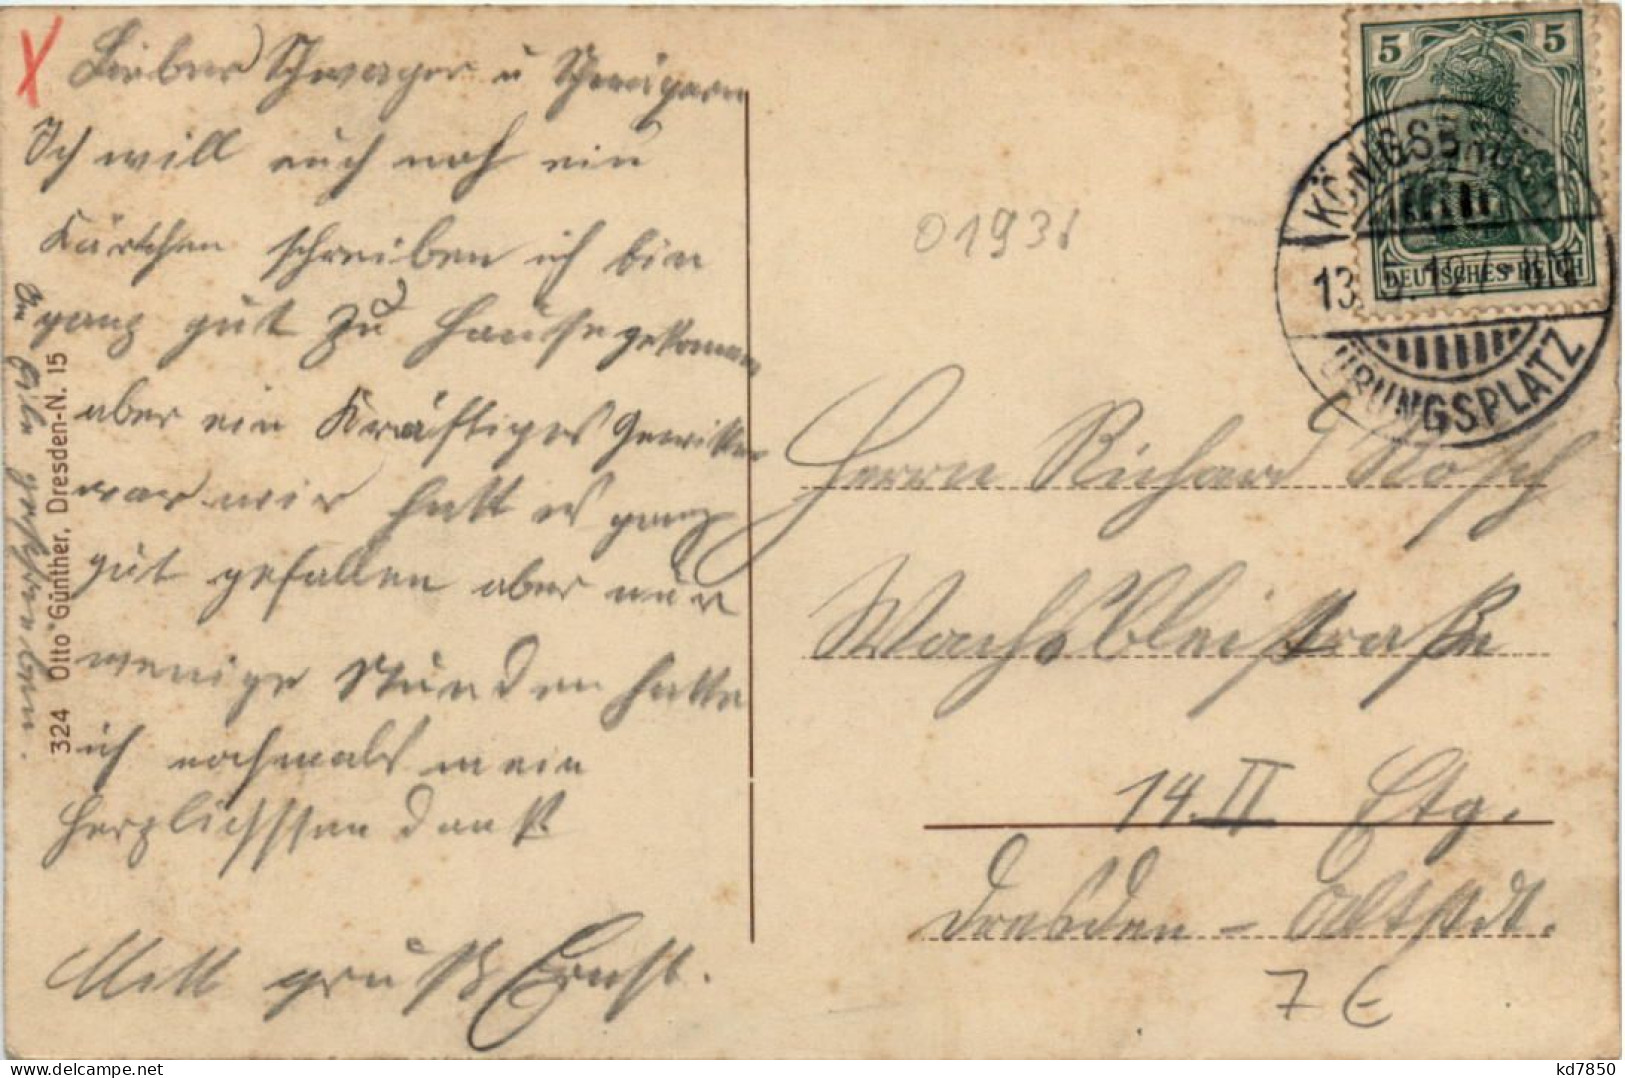 Lieber Schwager u Schwägerin
Ich will euch noch ein
Kärtchen schreiben ich bin
ganz gut zu Hause gekommen
aber ein Kräftiges Gewitter
war mir hatt es ganz
gut gefallen aber nur
wenige Stunden hatte
ich nochmals mein
herzlichsten dank
Mitt gruß Ernst.
324 Otto Günther, Dresden-N. 15
01931
5 5
DEUTSCHES REICH
KÖNIGSBRÜCK
13.5.12.7-8N
ÜBUNGSPLATZ
Herrn Richard Rosch
Wachsbleistraße
14.II Etg.
Dresden - Altstdt.
7 €
kd7850